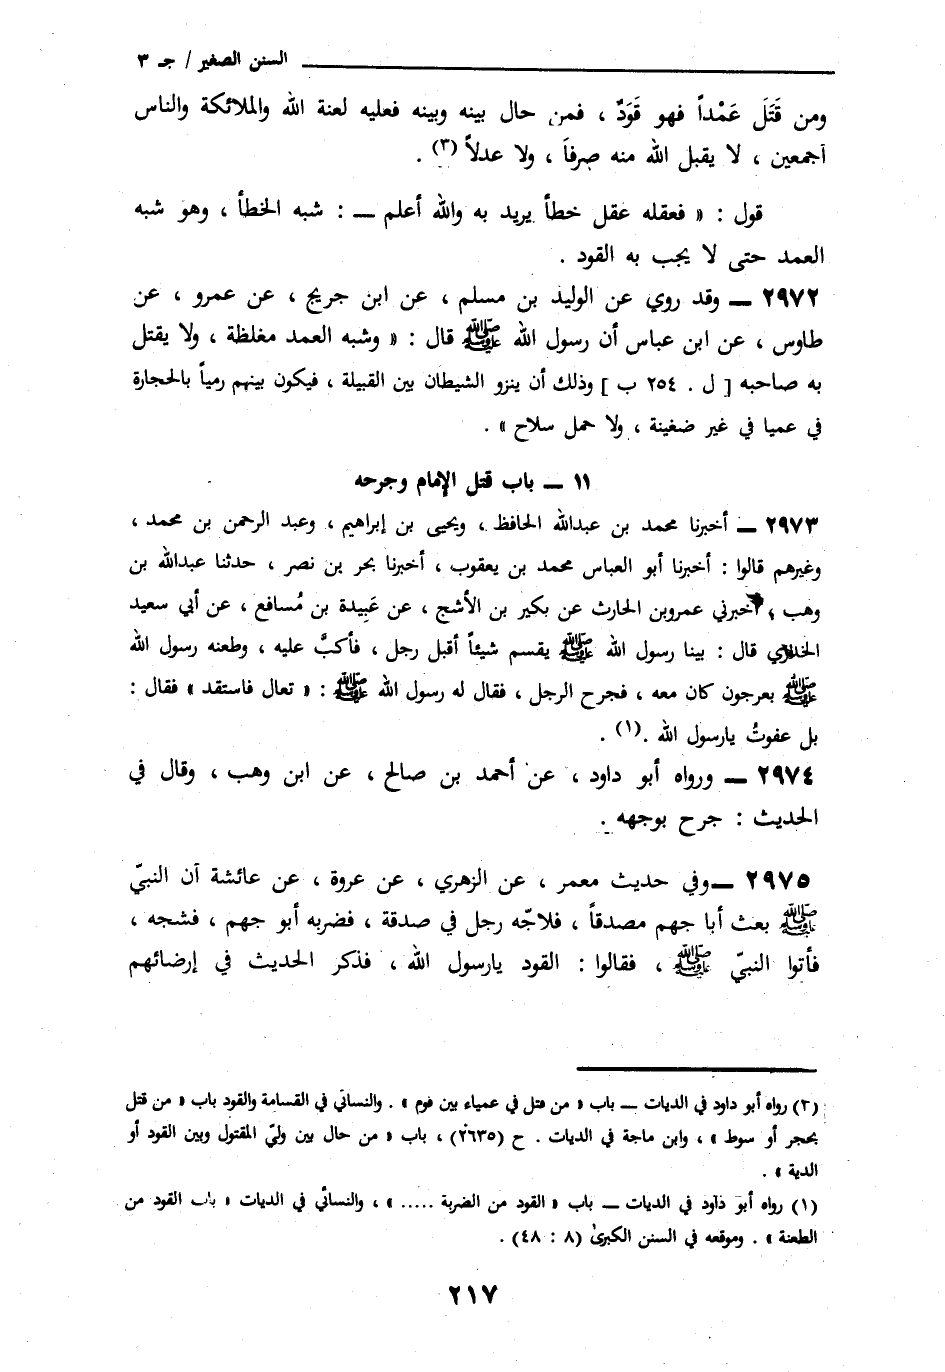 السنن الصغير / جـ ٣
ومن قَتَلَ عَمْداً فهو قَوَدٌ ، فمن حال بينه وبينه فعليه لعنة الله والملائكة والناس
أجمعين ، لا يقبل الله منه صرفاً ، ولا عدلاً (٣) .
قول : « فعقله عقل خطأ يريد به والله أعلم ــ : شبه الخطأ ، وهو شبه
العمد حتى لا يجب به القود .
٢٩٧٢ ــ وقد روي عن الوليد بن مسلم ، عن ابن جريج ، عن عمرو ، عن
طاوس ، عن ابن عباس أن رسول الله ﷺ قال : « وشبه العمد مغلظة ، ولا يقتل
به صاحبه [ ل . ٢٥٤ ب ] وذلك أن ينزو الشيطان بين القبيلة ، فيكون بينهم رمياً بالحجارة
في عميا في غير ضغينة ، ولا حمل سلاح » .
١١ ــ باب قتل الإمام وجرحه
٢٩٧٣ ــ أخبرنا محمد بن عبدالله الحافظ ، ويحيى بن إبراهيم ، وعبد الرحمن بن محمد ،
وغيرهم قالوا : أخبرنا أبو العباس محمد بن يعقوب ، أخبرنا بحر بن نصر ، حدثنا عبدالله بن
وهب ، أخبرني عمروبن الحارث عن بكير بن الأشج ، عن عَبِيدة بن مُسافع ، عن أبي سعيد
الخدري قال : بينا رسول الله ﷺ يقسم شيئاً أقبل رجل ، فأكبَّ عليه ، وطعنه رسول الله
ﷺ بعرجون كان معه ، فجرح الرجل ، فقال له رسول الله ﷺ : « تعال فاستقد » فقال :
بل عفوتُ يارسول الله .(١) .
٢٩٧٤ ــ ورواه أبو داود ، عن أحمد بن صالح ، عن ابن وهب ، وقال في
الحديث : جرح بوجهه .
٢٩٧٥ ــ وفي حديث معمر ، عن الزهري ، عن عروة ، عن عائشة أن النبيّ
ﷺ بعث أبا جهم مصدقاً ، فلاجّه رجل في صدقة ، فضربه أبو جهم ، فشجه ،
فأتوا النبيّ ﷺ ، فقالوا : القود يارسول الله ، فذكر الحديث في إرضائهم
(٣) رواه أبو داود في الديات ــ باب « من قتل في عمياء بين قوم » . والنسائي في القسامة والقود باب « من قتل
بحجر أو سوط » ، وابن ماجة في الديات . ح (٢٦٣٥) ، باب « من حال بين وليّ المقتول وبين القود أو
الدية » .
(١) رواه أبو داود في الديات ــ باب « القود من الضربة ..... » ، والنسائي في الديات « باب القود من
الطعنة » . وموقعه في السنن الكبرىٰ (٨ : ٤٨) .
٢١٧